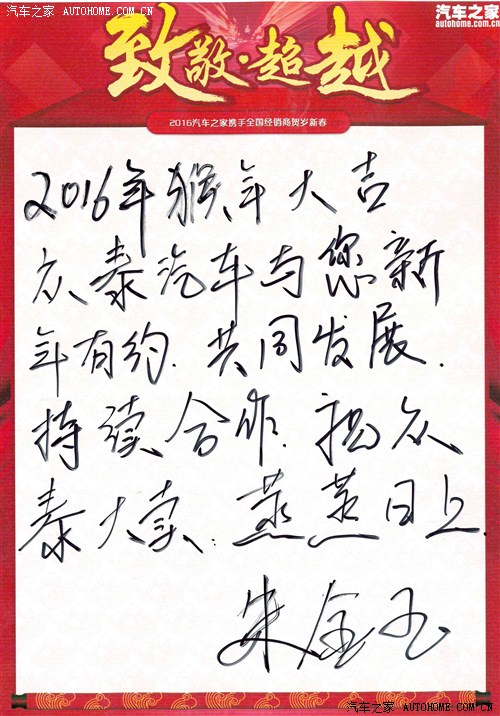 汽车之家 AUTOHOME.COM.CN
汽车之家
autohome.com.cn
致敬·超越
2016汽车之家携手全国经销商贺岁新春
2016年猴年大吉
众泰汽车与您新
年有约.共同发展.
持续合作.祝众
泰大卖.蒸蒸日上
朱金玉
汽车之家 AUTOHOME.COM.CN